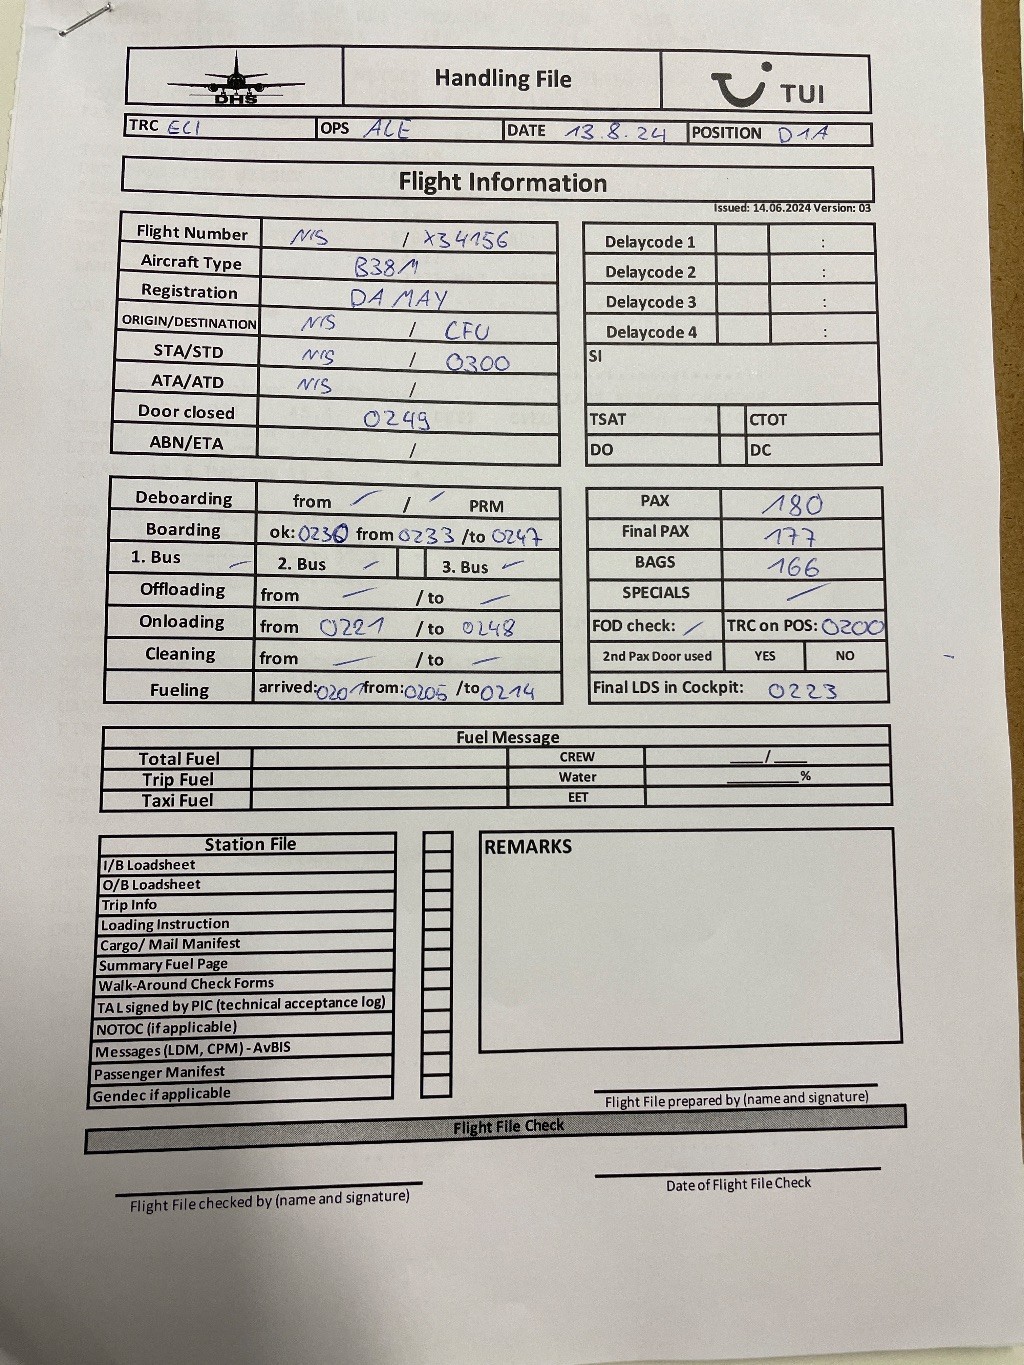 DHS Handling File TUI
TRC ECI OPS ALE DATE 13.8.24 POSITION D1A
Flight Information
Issued: 14.06.2024 Version: 03
Flight Number N/S / X34156
Aircraft Type B38M
Registration DAMAY
ORIGIN/DESTINATION N/S / CFU
STA/STD N/S / 0300
ATA/ATD N/S /
Door closed 0249
ABN/ETA /
Delaycode 1 :
Delaycode 2 :
Delaycode 3 :
Delaycode 4 :
SI
TSAT CTOT
DO DC
Deboarding from / / PRM
Boarding ok: 0230 from 0233 /to 0247
1. Bus 2. Bus 3. Bus
Offloading from / to
Onloading from 0221 / to 0248
Cleaning from / to
Fueling arrived: 0201 from: 0205 /to 0214
PAX 180
Final PAX 177
BAGS 166
SPECIALS
FOD check: / TRC on POS: 0200
2nd Pax Door used YES NO
Final LDS in Cockpit: 0223
Fuel Message
Total Fuel CREW ____/____
Trip Fuel Water ________%
Taxi Fuel EET
Station File
I/B Loadsheet
O/B Loadsheet
Trip Info
Loading Instruction
Cargo/ Mail Manifest
Summary Fuel Page
Walk-Around Check Forms
TAL signed by PIC (technical acceptance log)
NOTOC (if applicable)
Messages (LDM, CPM) - AvBIS
Passenger Manifest
Gendec if applicable
REMARKS
Flight File prepared by (name and signature)
Flight File Check
Flight File checked by (name and signature)
Date of Flight File Check